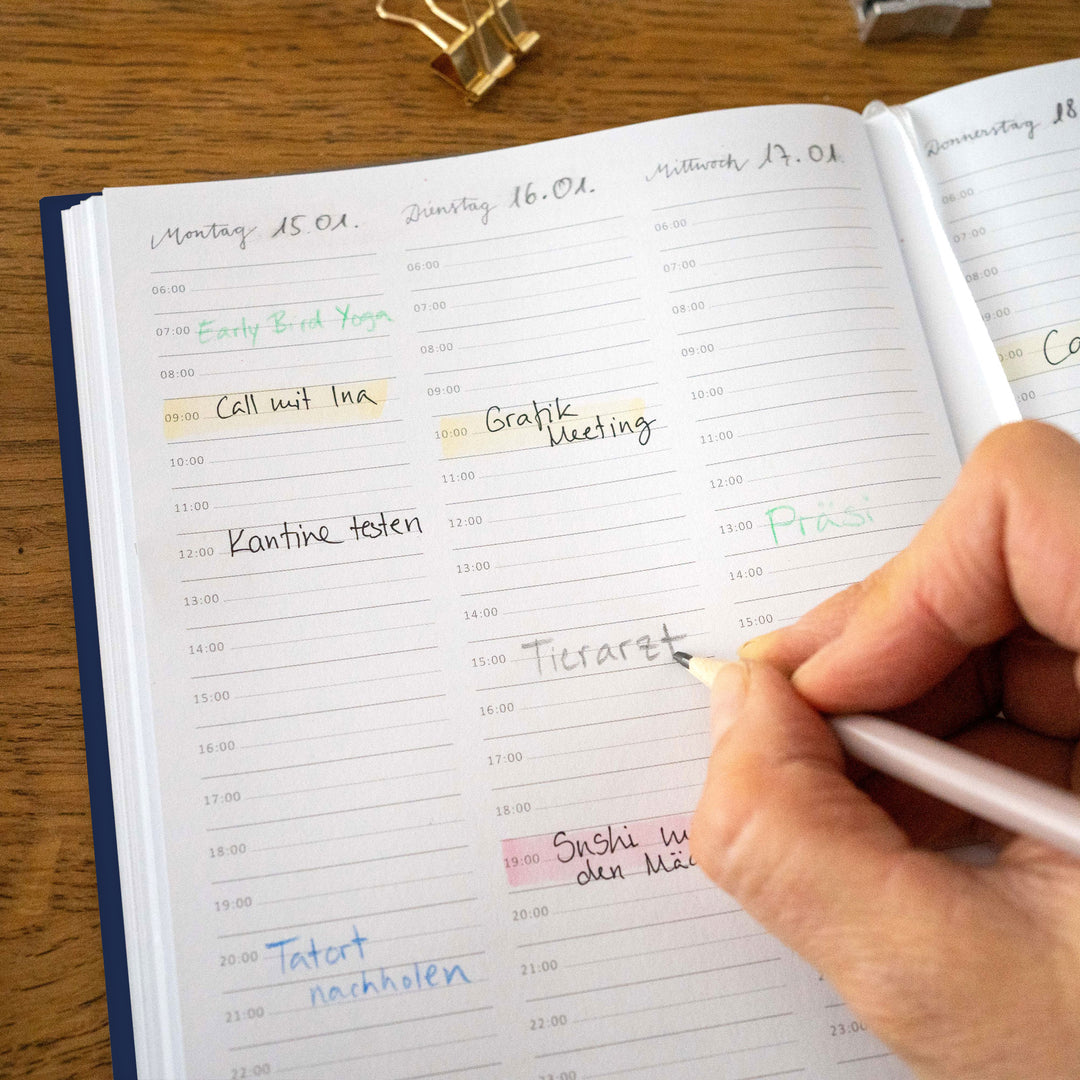 Montag 15.01.
06:00
07:00 Early Bird Yoga
08:00
09:00 Call mit Ina
10:00
11:00
12:00 Kantine testen
13:00
14:00
15:00
16:00
17:00
18:00
19:00
20:00 Tatort
nachholen
21:00
22:00
Dienstag 16.01.
06:00
07:00
08:00
09:00
10:00 Grafik
Meeting
11:00
12:00
13:00
14:00
15:00 Tierarzt
16:00
17:00
18:00
19:00 Sushi
den
20:00
21:00
22:00
23:00
Mittwoch 17.01.
06:00
07:00
08:00
09:00
10:00
11:00
12:00
13:00 Präsi
14:00
15:00
23:00
Donnerstag 18
06:00
07:00
08:00